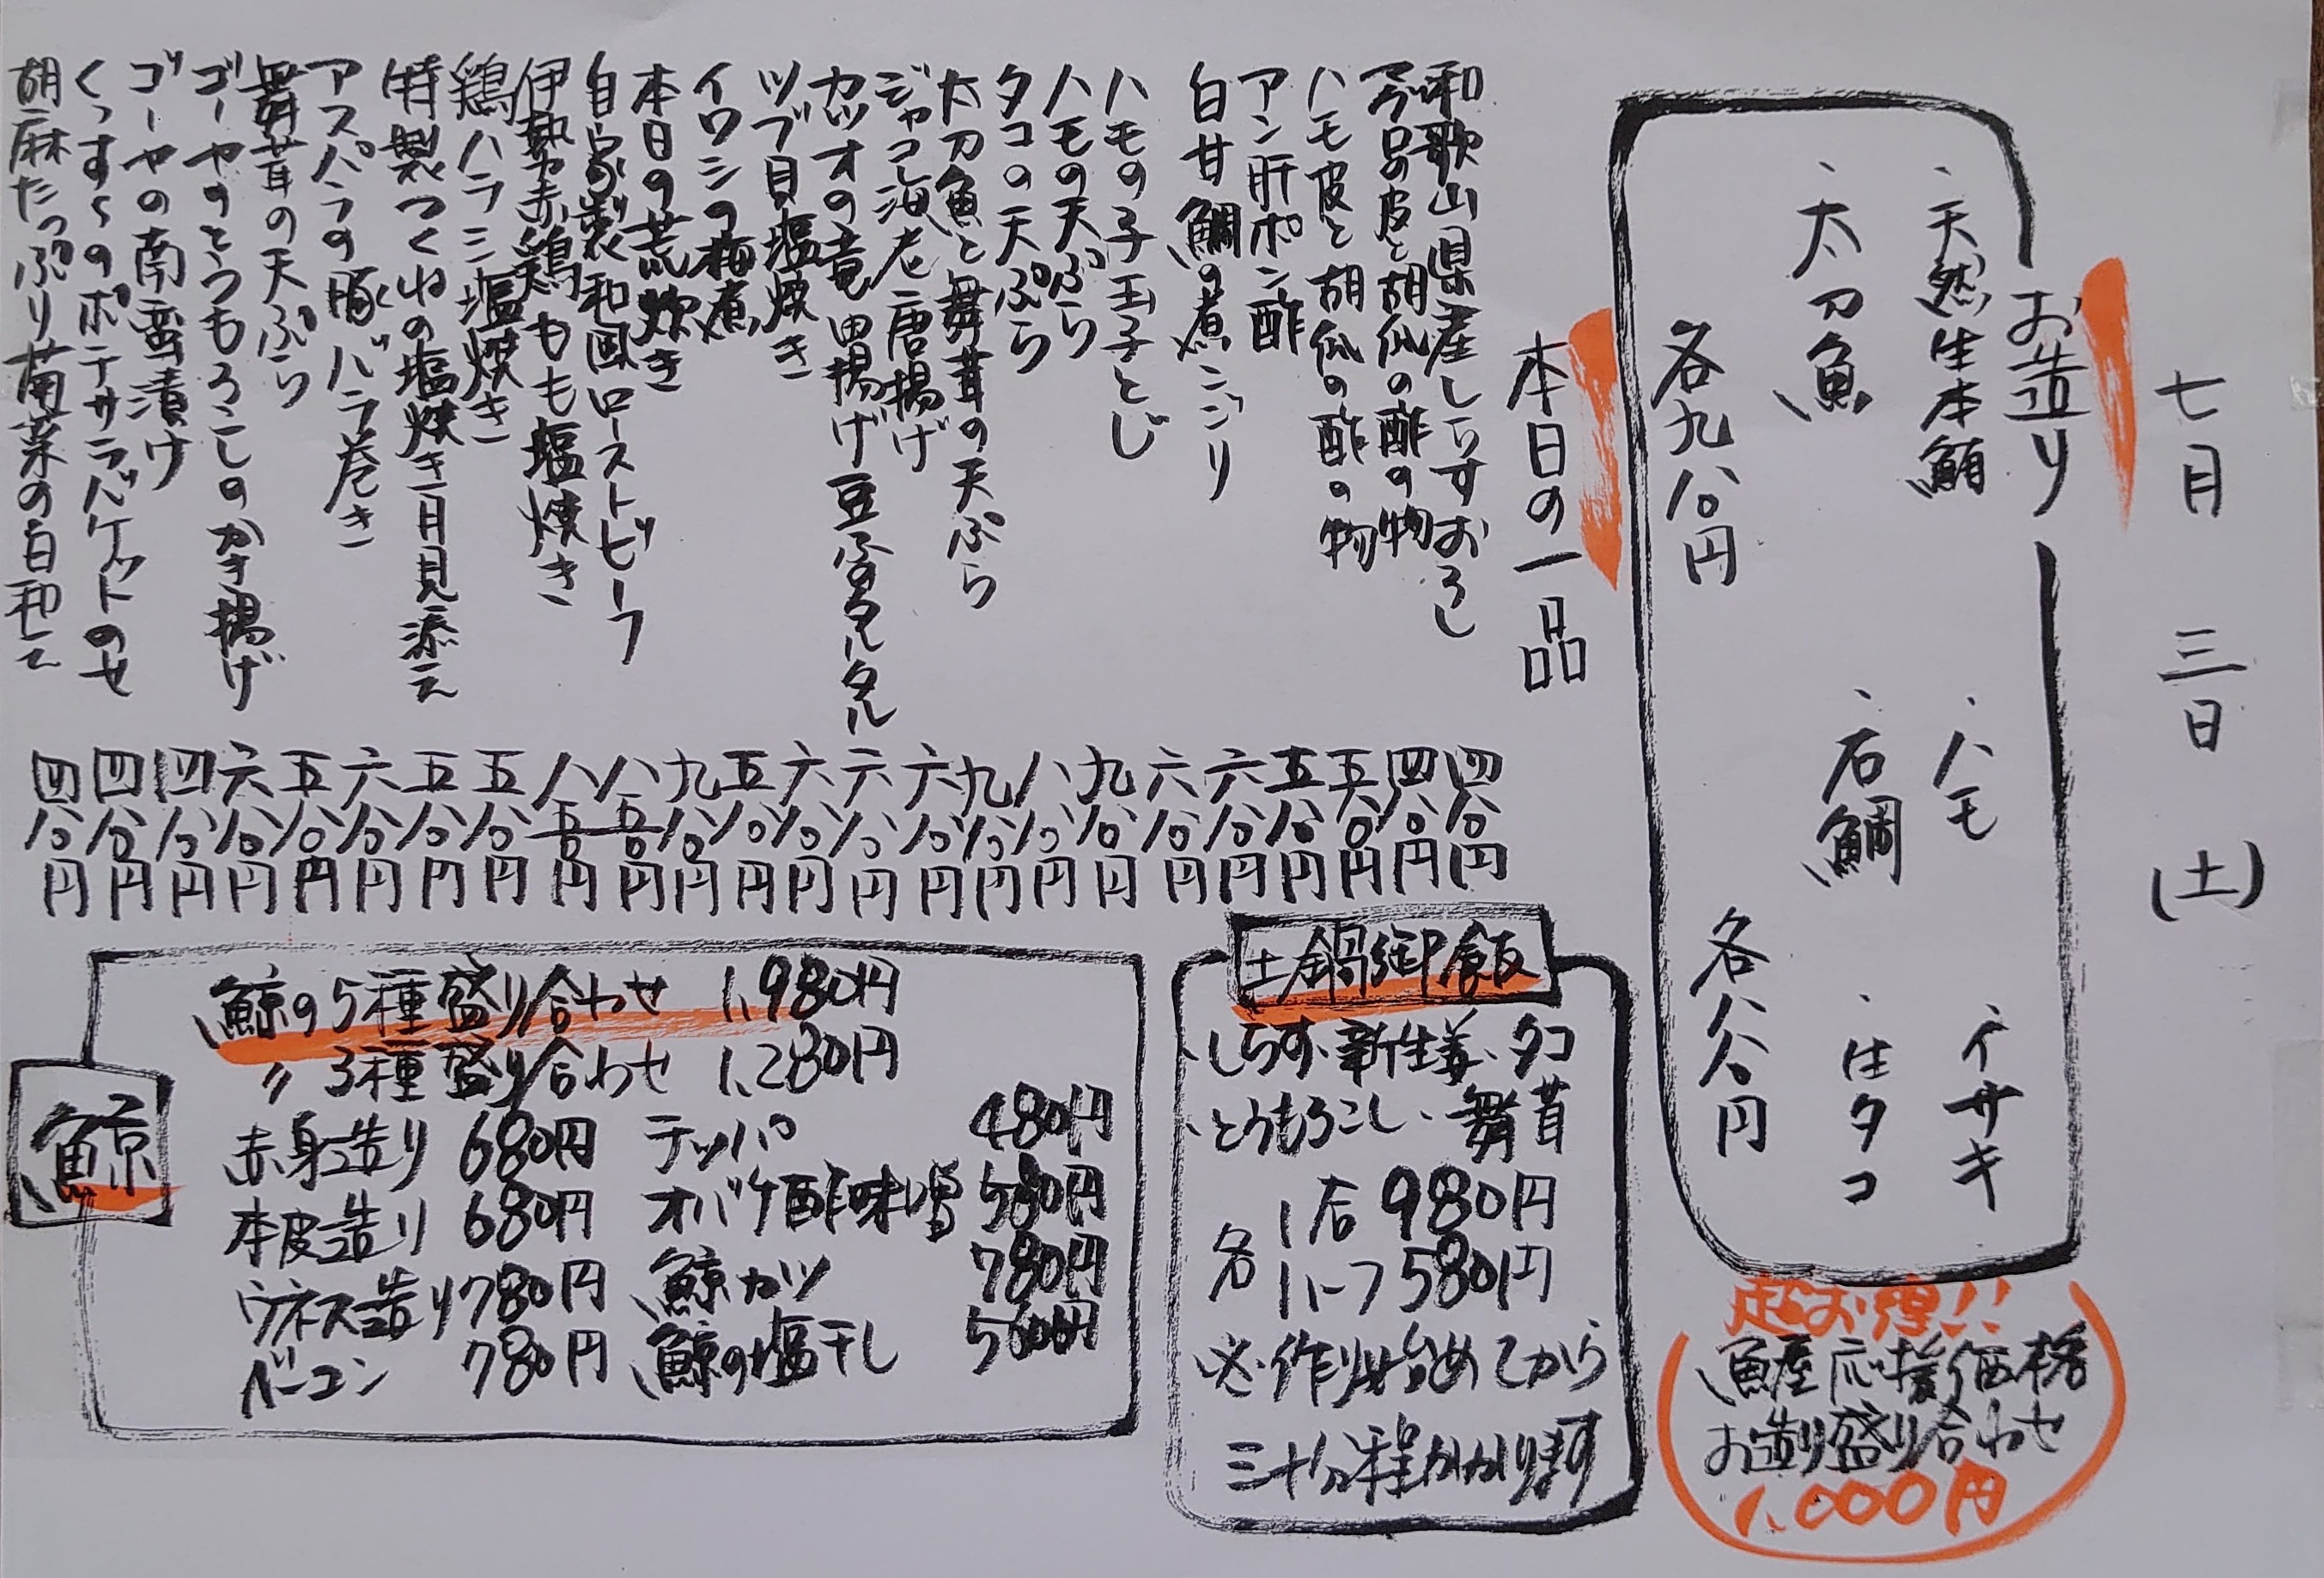 七月三日(土)
お造り
、天然生本鮪 、ハモ 、イサキ
、太刀魚 、石鯛 、生タコ
各九八〇円 各八八〇円
超お得!!
魚屋応援価格
お造り盛り合わせ
1,000円
本日の一品
和歌山県産しらすおろし 四八〇円
の皮と胡瓜の酢の物 四八〇円
ハモ皮と胡瓜の酢の物 五八〇円
アン肝ポン酢 五八〇円
白甘鯛の煮こごり 六八〇円
ハモの子玉子とじ 六八〇円
ハモの天ぷら 九八〇円
タコの天ぷら 八八〇円
太刀魚と舞茸の天ぷら 九八〇円
ジャコ海老唐揚げ 六八〇円
カツオの竜田揚げ豆ふタルタル 六八〇円
ツブ貝塩焼き 六八〇円
イワシの梅煮 五八〇円
本日の荒炊き 九八〇円
自家製和風ローストビーフ 八五〇円
伊勢赤鶏もも塩焼き 八五〇円
鶏ハラミ塩焼き 五八〇円
特製つくねの塩焼き月見添え 五八〇円
アスパラの豚バラ巻き 六八〇円
舞茸の天ぷら 五八〇円
ゴーヤのとうもろこしのかき揚げ 六八〇円
ゴーヤの南蛮漬け 四八〇円
のポテサラバケットのせ 四八〇円
胡麻たっぷり菊菜の白和え 四八〇円
土鍋御飯
、しらす、新生姜、タコ
、とうもろこし、舞茸
各 1合 980円
ハーフ 580円
※作り始めてから
三十分程かかります
鯨
鯨の5種盛り合わせ 1,980円
〃 3種盛り合わせ 1,280円
赤身造り 680円 テッパ 480円
本皮造り 680円 オバケ酢味噌 580円
ウネス造り 780円 鯨カツ 780円
ベーコン 780円 鯨の塩干し 500円